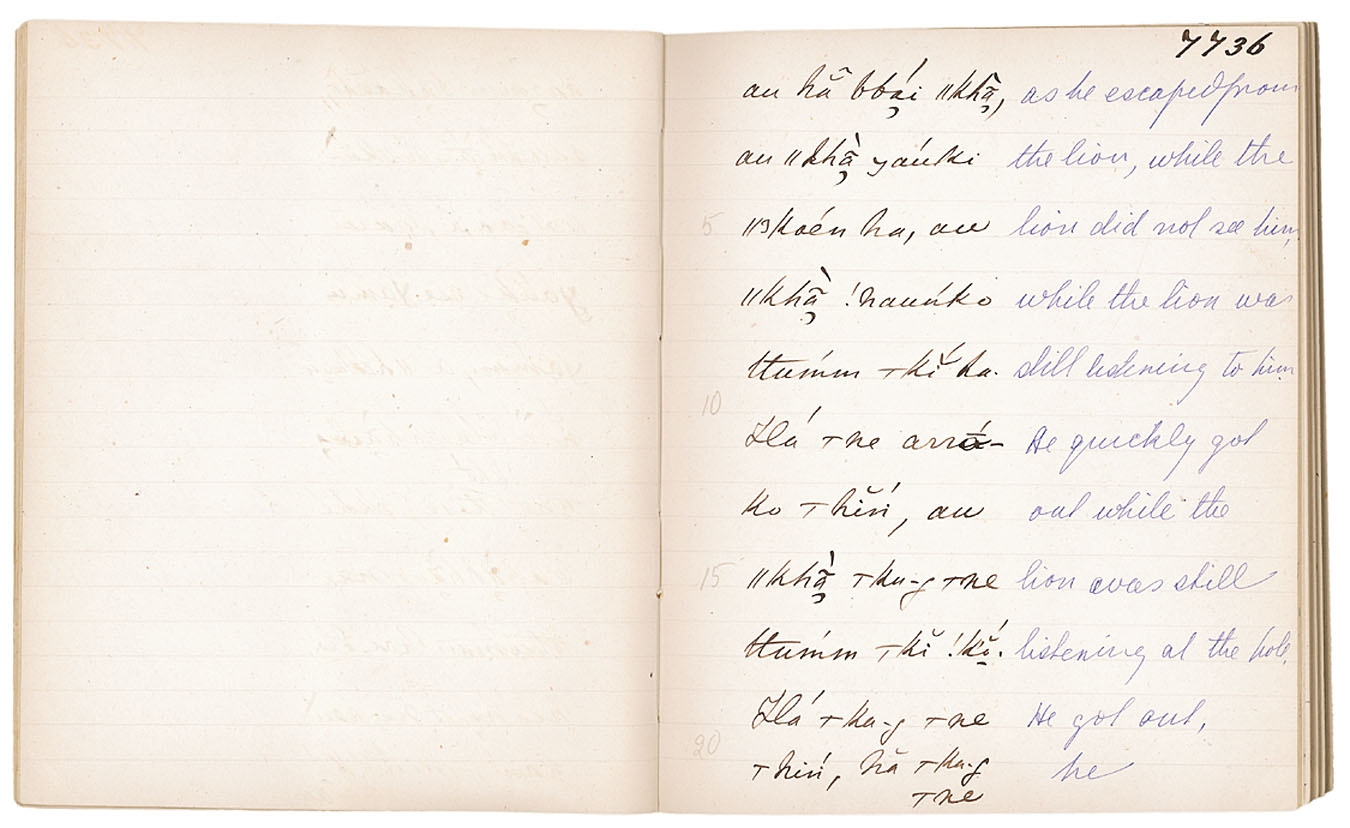 7736
au hā̆ bbá̤i ǁkhā̰, as he escaped from
au ǁkhā̰̀ yaúki the lion, while the
5 ǁɜkoén ha, au lion did not see him,
ǁkhā̰̀ !naunko while the lion was
ttumm ⊤kĭ ha. still listening to him
10
Há ⊤ne arrá- He quickly got
ko ⊤hĭń, au out while the
15 ǁkhā̰̀ ⊤ku-g ⊤ne lion was still
ttumm ⊤kĭ !kŏ́. listening at the hole.
Há ⊤ku-g ⊤ne He got out,
20
⊤hĭń, hă ⊤ku-g he
⊤ne